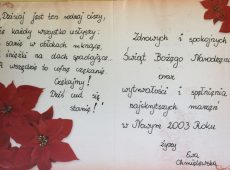 Dzisiaj jest ten rodzaj ciszy,
że każdy wszystko usłyszy:
i sanie w obłokach mknące,
i śnieżki na dach spadające.
A wszędzie to ufne czekanie.
Czekajmy!
Dziś cud się
stanie!
Zdrowych i spokojnych
Świąt Bożego Narodzenia
oraz
wytrwałości i spełnienia
najskrytszych marzeń
w Nowym 2003 Roku
życzy
Ewa
Chmielewska